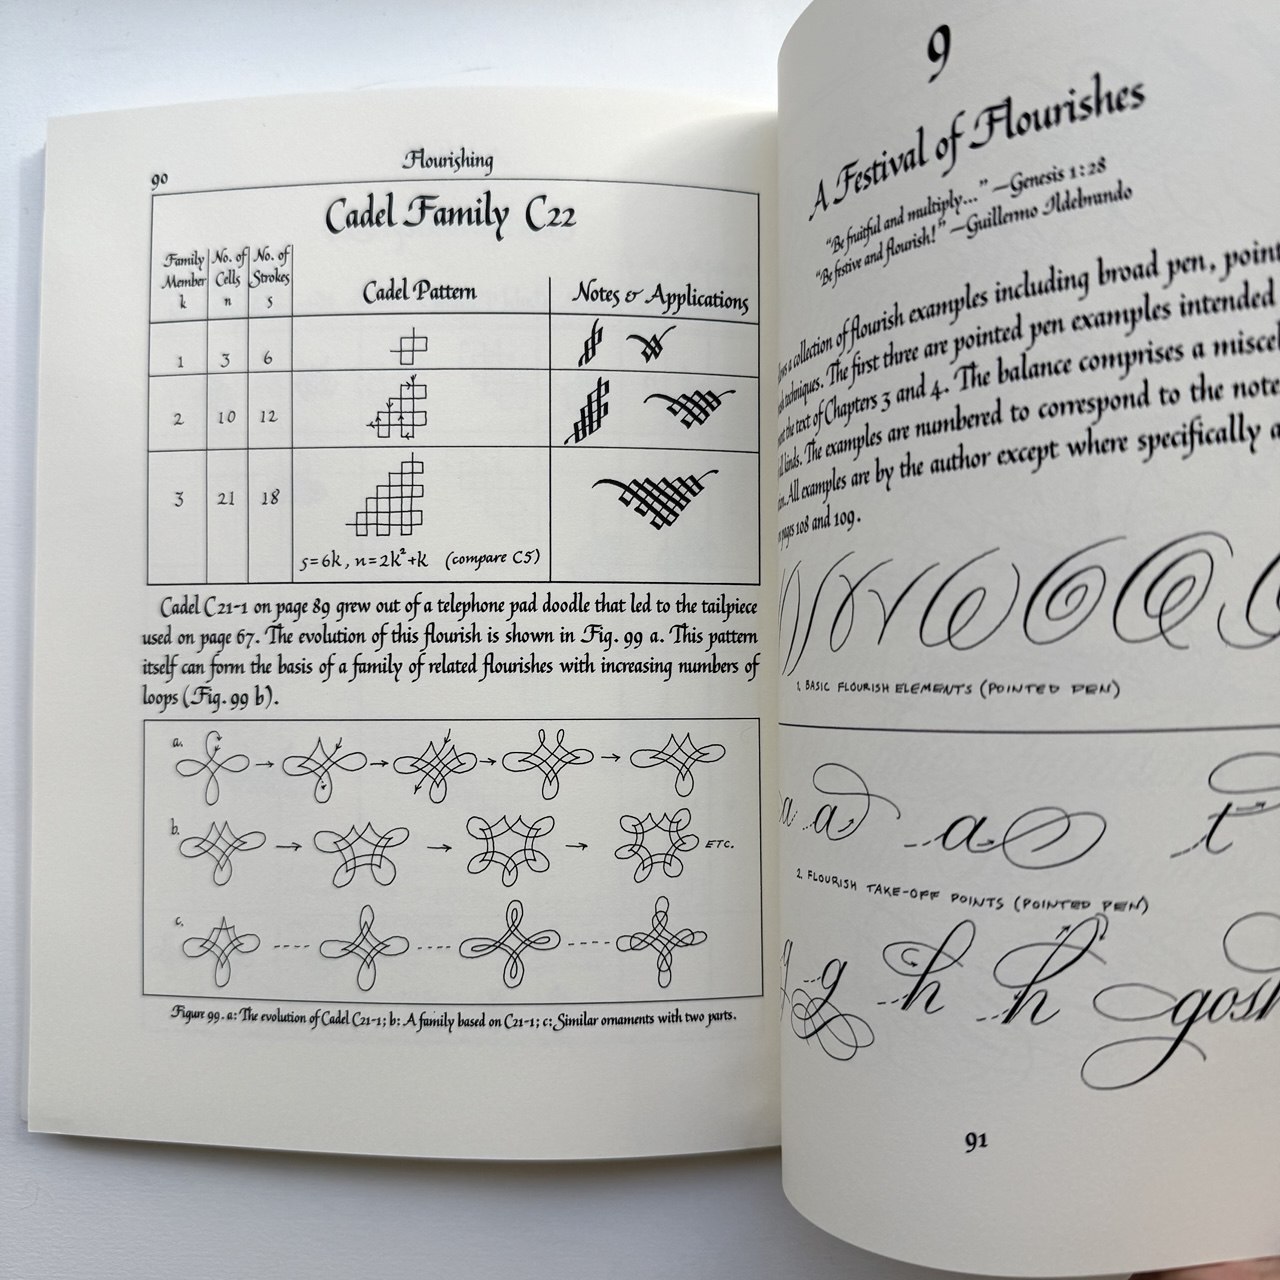 90
Flourishing
Cadel Family C22
Family Member k
No. of Cells n
No. of Strokes s
Cadel Pattern
Notes & Applications
1 3 6
2 10 12
3 21 18
s=6k, n=2k²+k (compare C5)
Cadel C21-1 on page 89 grew out of a telephone pad doodle that led to the tailpiece
used on page 67. The evolution of this flourish is shown in Fig. 99 a. This pattern
itself can form the basis of a family of related flourishes with increasing numbers of
loops (Fig. 99 b).
a.
b.
ETC.
c.
Figure 99. a: The evolution of Cadel C21-1; b: A family based on C21-1; c: Similar ornaments with two parts.
9
A Festival of Flourishes
"Be fruitful and multiply..." —Genesis 1:28
"Be festive and flourish!" —Guillermo Ildebrando
a collection of flourish examples including broad pen, point
techniques. The first three are pointed pen examples intended
the text of Chapters 3 and 4. The balance comprises a miscel
kinds. The examples are numbered to correspond to the note
All examples are by the author except where specifically a
pages 108 and 109.
1. BASIC FLOURISH ELEMENTS (POINTED PEN)
a a a t
2. FLOURISH TAKE-OFF POINTS (POINTED PEN)
g g h h gosh
91